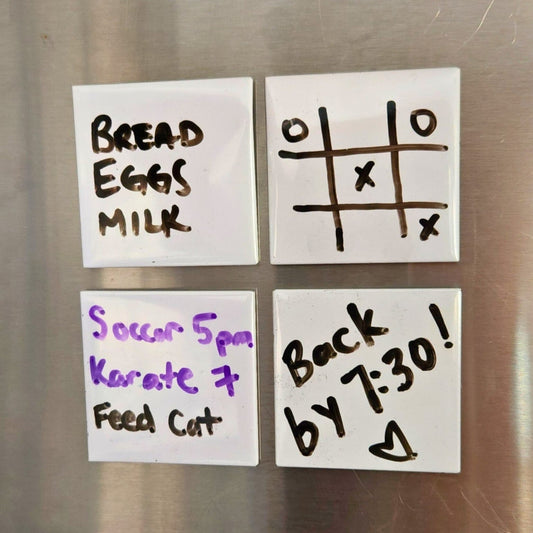 BREAD
EGGS
MILK
O O
X
X
Soccer 5pm
Karate 7
Feed Cat
Back
by 7:30!